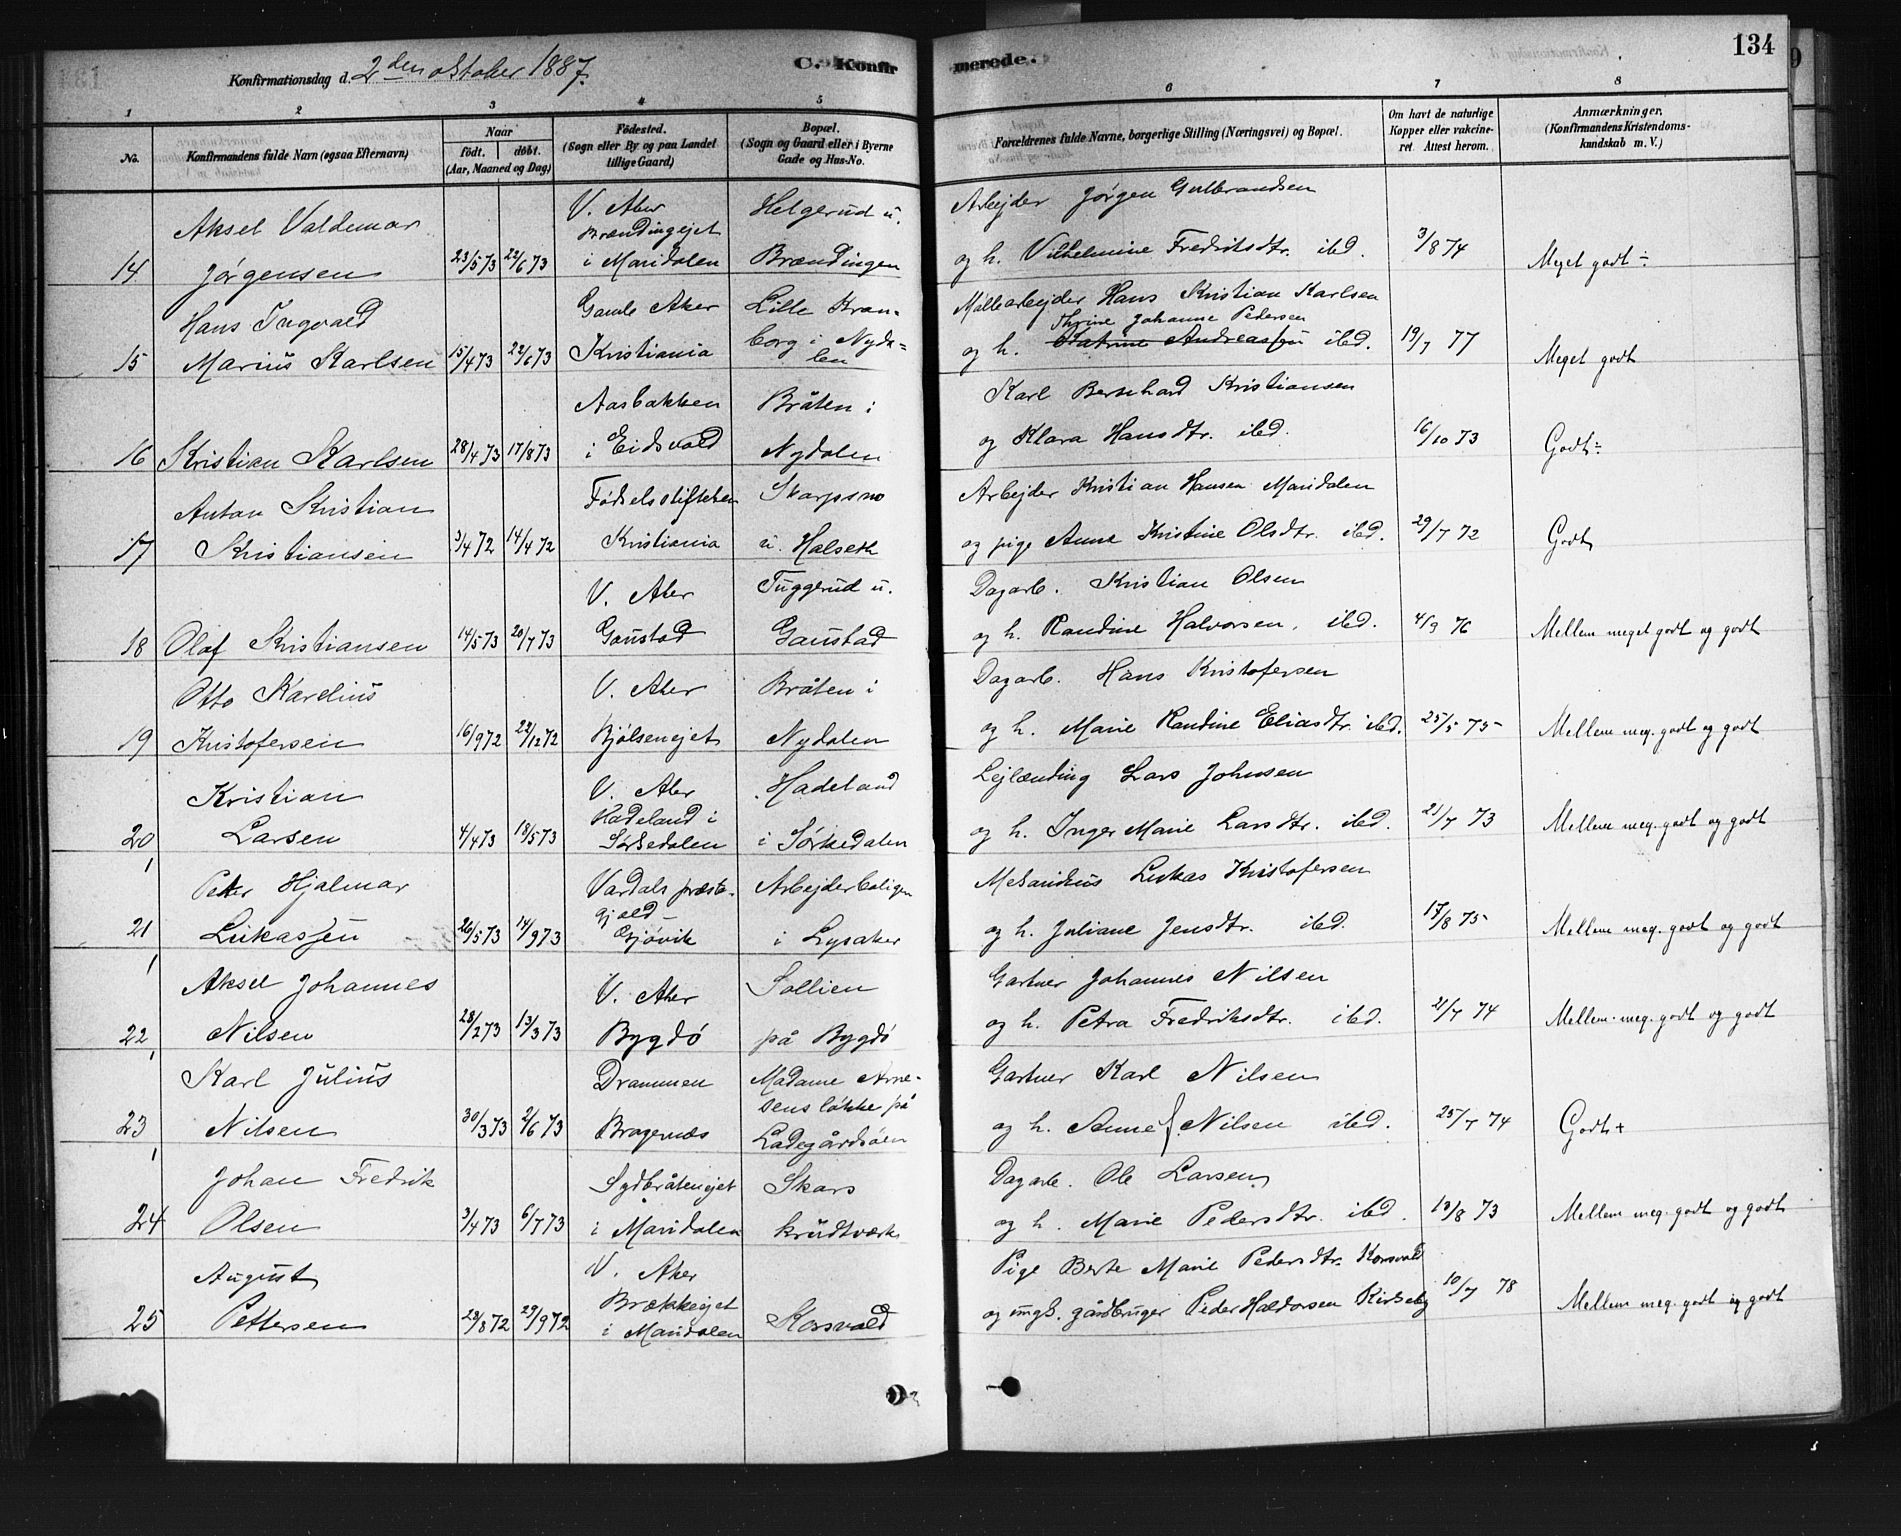 134
Konfirmationsdag d. 2den oktober 1887.
C. Konfirmerede.
1 2 3 4 5 6 7 8
No.
Konfirmandens fulde Navn (ogsaa Efternavn)
Naar
födt. döbt.
(Aar, Maaned og Dag)
Födested.
(Sogn eller By og paa Landet
tillige Gaard)
Bopæl.
(Sogn og Gaard eller i Byerne
Gade og Hus-No.
Forældrenes fulde Navne, borgerlige Stilling (Næringsvei) og Bopæl.
Om havt de naturlige
Kopper eller vakcine-
ret. Attest herom.
Anmærkninger.
(Konfirmandens Kristendoms-
kundskab m. V.)
Aksel Valdemar V. Aker Helgerud u. Arbejder Jørgen Gulbrandsen
Brændingejet
14. Jørgensen 23/5 73 22/6 73 i Maridalen Brændingen og h. Vilhelmine Fredriksdtr. ibd. 3/8 74 Meget godt ÷
Hans Ingvald Gamle Aker Lille Kran- Møllearbejder Hans Kristian Karlsen
Thrine Johanne Pedersen
15 Marius Karlsen 15/4 73 22/6 73 Kristiania borg i Nyda- og h. Katrine Andreassen ibd. 19/7 77 Meget godt
len
Aasbakken Bråten i Karl Bernhard Kristiansen
16 Kristian Karlsen 28/4 73 17/8 73 i Eidsvold Nydalen og Klara Hansdtr. ibd. 16/10 73 Godt ÷
Anton Kristian Fødselsstiftelsen Skarpsno Arbejder Kristian Hansen Maridalen
17 Kristiansen 3/4 72 14/4 72 Kristiania u. Halseth og pige Anne Kristine Olsdtr. ibd. 29/7 72 Godt
V. Aker Tuggerud u. Dagarb. Kristian Olsen
18 Olaf Kristiansen 14/5 73 20/7 73 Gaustad Gaustad og h. Randine Halvorsen, ibd. 4/9 76 Mellem meget godt og godt
Otto Karelius V. Aker Bråten i Dagarb. Hans Kristofersen
19 Kristofersen 16/9 72 22/12 72 Bjølsenejet Nydalen og h. Marie Randine Eliasdtr. ibd. 25/5 75 Mellem meg. godt og godt
Kristian V. Aker Hadeland Lejlænding Lars Johnsen
Hadeland i
20 Larsen 4/4 73 18/5 73 Sørkedalen i Sørkedalen og h. Inger Marie Larsdtr. ibd. 21/7 73 Mellem meg. godt og godt
Peter Hjalmar Vardals præste- Arbejderboligen Lukas Kristofersen
gjeld -
21 Lukassen 26/5 73 14/9 73 Gjøvik i Lysaker og h. Juliane Jensdtr. ibd. 17/8 75 Mellem meg. godt og godt
Aksel Johannes V. Aker Sollien Gartner Johannes Nilsen
22 Nilsen 28/2 73 13/3 73 Bygdø på Bygdø og h. Petra Fredriksdtr. ibd. 21/7 74 Mellem meg. godt og godt
Karl Julius Drammen Madame Arne- Gartner Karl Nilsen
sens løkke på
23 Nilsen 30/3 73 2/6 73 Bragernæs Ladegårdsøen og h. Anne f. Nilsen ibd. 25/7 74 Godt +
Johan Fredrik Sydbråtenejet Skars Dagarb. Ole Larsen
24 Olsen 3/4 73 6/7 73 i Maridalen krudtværk og h. Marie Pedersdtr. ibd. 13/8 73 Mellem meg. godt og godt
August V. Aker Pige Berte Marie Pedersdtr. Korsvold
Brækkeejet
25 Pettersen 23/8 72 29/9 72 i Maridalen Korsvold og ungk. gårdbruger Peder Haldorsen Kirkeby 10/7 78 Mellem meg. godt og godt